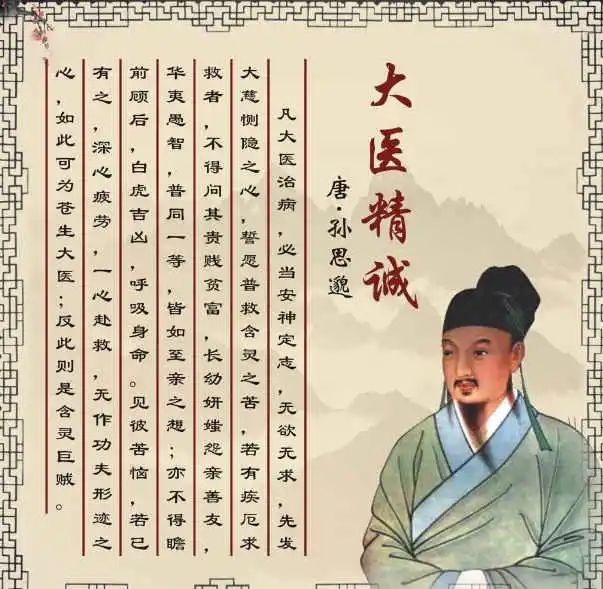 大医精诚
唐·孙思邈
凡大医治病，必当安神定志，无欲无求，先发
大慈恻隐之心，誓愿普救含灵之苦，若有疾厄求
救者，不得问其贵贱贫富，长幼妍媸怨亲善友，
华夷愚智，普同一等，皆如至亲之想；亦不得瞻
前顾后，白虎吉凶，呼吸身命。见彼苦恼，若已
有之，深心疲劳，一心赴救，无作功夫形迹之
心，如此可为苍生大医；反此则是含灵巨贼。